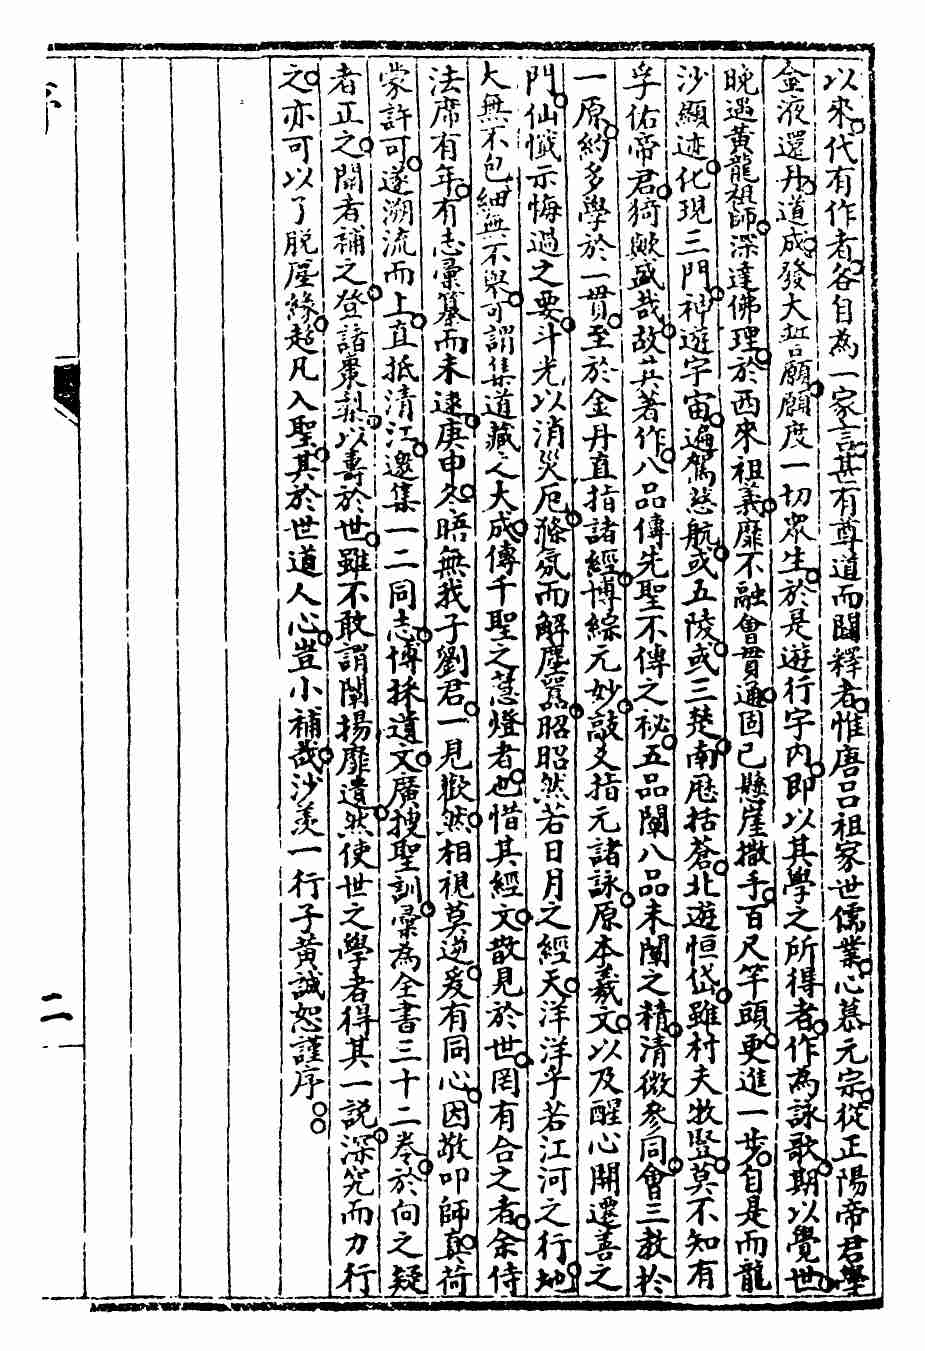 以來。代有作者。各自為一家言。甚有尊道而闢釋者。惟唐呂祖家世儒業。心慕元宗。從正陽帝君學
金液還丹。道成。發大誓願。願度一切眾生。於是遊行宇內。即以其學之所得者。作為詠歌。期以覺世。
晚遇黃龍祖師。深達佛理。於西來祖義。靡不融會貫通。固已懸崖撒手。百尺竿頭。更進一步。自是而龍
沙顯迹。化現三門。神遊宇宙。遍駕慈航。或五陵。或三楚。南厯括蒼。北遊恒岱。雖村夫牧豎。莫不知有
孚佑帝君。猗歟盛哉。故其著作。八品傳先聖不傳之祕。五品闡八品未闡之精。清微參同會三教於
一原。約多學於一貫。至於金丹直指諸經。博綜元妙。敲爻指元諸詠。原本羲文。以及醒心開遷善之
門。仙懺示悔過之要。斗光以消災厄。滌氛而解塵囂。昭昭然若日月之經天。洋洋乎若江河之行地。
大無不包。細無不舉。可謂集道藏之大成。傳千聖之慧燈者也。惜其經文。散見於世。罔有合之者。余侍
法席有年。有志彙纂而未逮。庚申冬。晤無我子劉君。一見歡然。相視莫逆。爰有同心。因敬叩師真。荷
蒙許可。遂溯流而上。直抵清江。邀集一二同志。博採遺文。廣搜聖訓。彙為全書三十二卷。於向之疑
者正之。闕者補之。登諸棗梨。以壽於世。雖不敢謂闡揚靡遺。然使世之學者得其一說。深究而力行
之。亦可以了脫塵緣。超凡入聖。其於世道人心。豈小補哉。沙羨一行子黃誠恕謹序。。
序
二